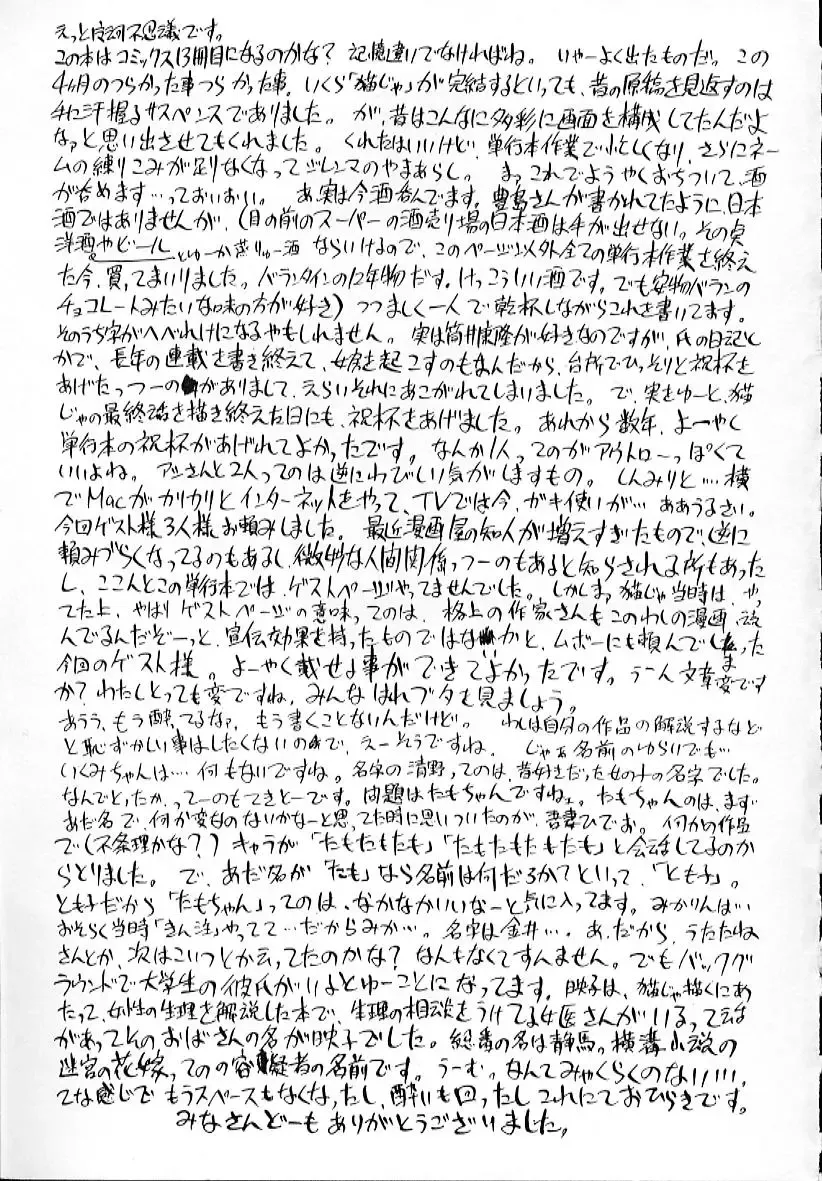 えっと摩訶不思議です。
この本はコミックス13冊目になるのかな？ 記憶違いでなければね。 いやーよく出たものだっ この
4ヶ月のつらかった事つらかった事。いくら「猫じゃ」が完結するといっても、昔の原稿を見返すのは
手に汗握るサスペンスでありました。 が、昔はこんなに多彩に画面を構成してたんだよ
なァと思い出させてもくれました。 くれたはいいけど、単行本作業で忙しくなり、さらにネー
ムの練りこみが足りなくなってジレンマのやまあらし。 まっ これでようやくおちついて、酒
が呑めます…っておいおい。 あ、実は今酒呑んでます。豊島さんが書かれてたように、日本
酒ではありませんが、(目の前のスーパーの酒売り場の日本酒は手が出せない。その点
洋酒やビールとゆーか蒸りゅー酒ならいけるので、このページ以外全ての単行本作業を終え
た今、買ってまいりました。バランタインの12年物だす。けっこういい酒です。でも安物バランの
チョコレートみたいな味の方が好き) つつましく一人で乾杯しながらこれを書いてます。
そのうち字がへべれけになるやもしれません。 実は筒井康隆が好きなのですが、氏の日記と
かで、長年の連載を書き終えて、女房を起こすのもなんだから、台所でひっそりと祝杯を
あげたっつーのがありまして、えらいそれにあこがれてしまいました。 で、実をゆーと、猫
じゃの最終話を描き終えた日にも、祝杯をあげました。 あれから数年、よーやく
単行本の祝杯があげれてよかったです。 なんか1人ってのがアウトローっぽくて
いいよね。 アシさんと2人ってのは逆にわびしい気がしますもの。 しんみりと…横
でMacがカリカリとインターネットをやって、TVでは今、ガキ使いが… ああうるさい。
今回ゲスト様3人様お頼みしました。 最近漫画屋の知人が増えすぎたもので、逆に
頼みづらくなってるのもあるし、微妙な人間関係っつーのもあると知らされる所もあった
し、ここんとこの単行本では、ゲストページやってませんでした。しかしまっ猫じゃ当時は、やっ
てた上、やはりゲストページの意味ってのは、格上の作家さんもこのわしの漫画、読
んでるんだぞーっと、宣伝効果を持ったものではなかかと、ムボーにも頼んでしまった
今回のゲスト様。 よーやく載せる事ができてよかったです。 うーん文章変です
か？わたしとっても変ですね。みんなはれブタを見ましょう。
あうう、もう酔ってるなァ、もう書くことないんだけど。 わしは自分の作品の解説するなど
と恥ずかしい事はしたくないので、えーそうですね。 じゃぁ名前のゆらいでも…
いくみちゃんは… 何もないですね。名字の清野ってのは、昔好きだった女の子の名字でした。
なんでとったか、ってーのもてきとーです。問題はたもちゃんですねェ。たもちゃんのは、まず
あだ名で、何か変なのないかなーと思ってた時に思いついたのが、吾妻ひでお。何かの作品
で(不条理かな？) キャラが「たもたもたも」「たもたもたもたも」と会話してるのか
らとりました。 で、あだ名が「たも」なら名前は何だろか？といって、「とも子」。
とも子だから「たもちゃん」ってのは、なかなかいいなーと気に入ってます。みかりんは…
おそらく当時「きん注」やってて…だからみか…。名字は金井…。あ、だから、うたたね
さんとか、次はこいつとか云ってたのかな？なんもなくてすんません。でもバックグ
ラウンドで大学生の彼氏がいるとゆーことになってます。映子は、猫じゃ描くにあ
たって、女性の生理を解説した本で、生理の相談をうけてる女医さんがいるって話
があってそのおばさんの名が映子でした。総番の名は静馬っ横溝小説の
迷宮の花嫁ってのの容疑者の名前です。 うーむ。なんてみゃくらくのないい!!!
てな感じで もうスペースもなくなったし、酔いも回ったし これにておひらきです。
みなさんどーもありがとうございました。